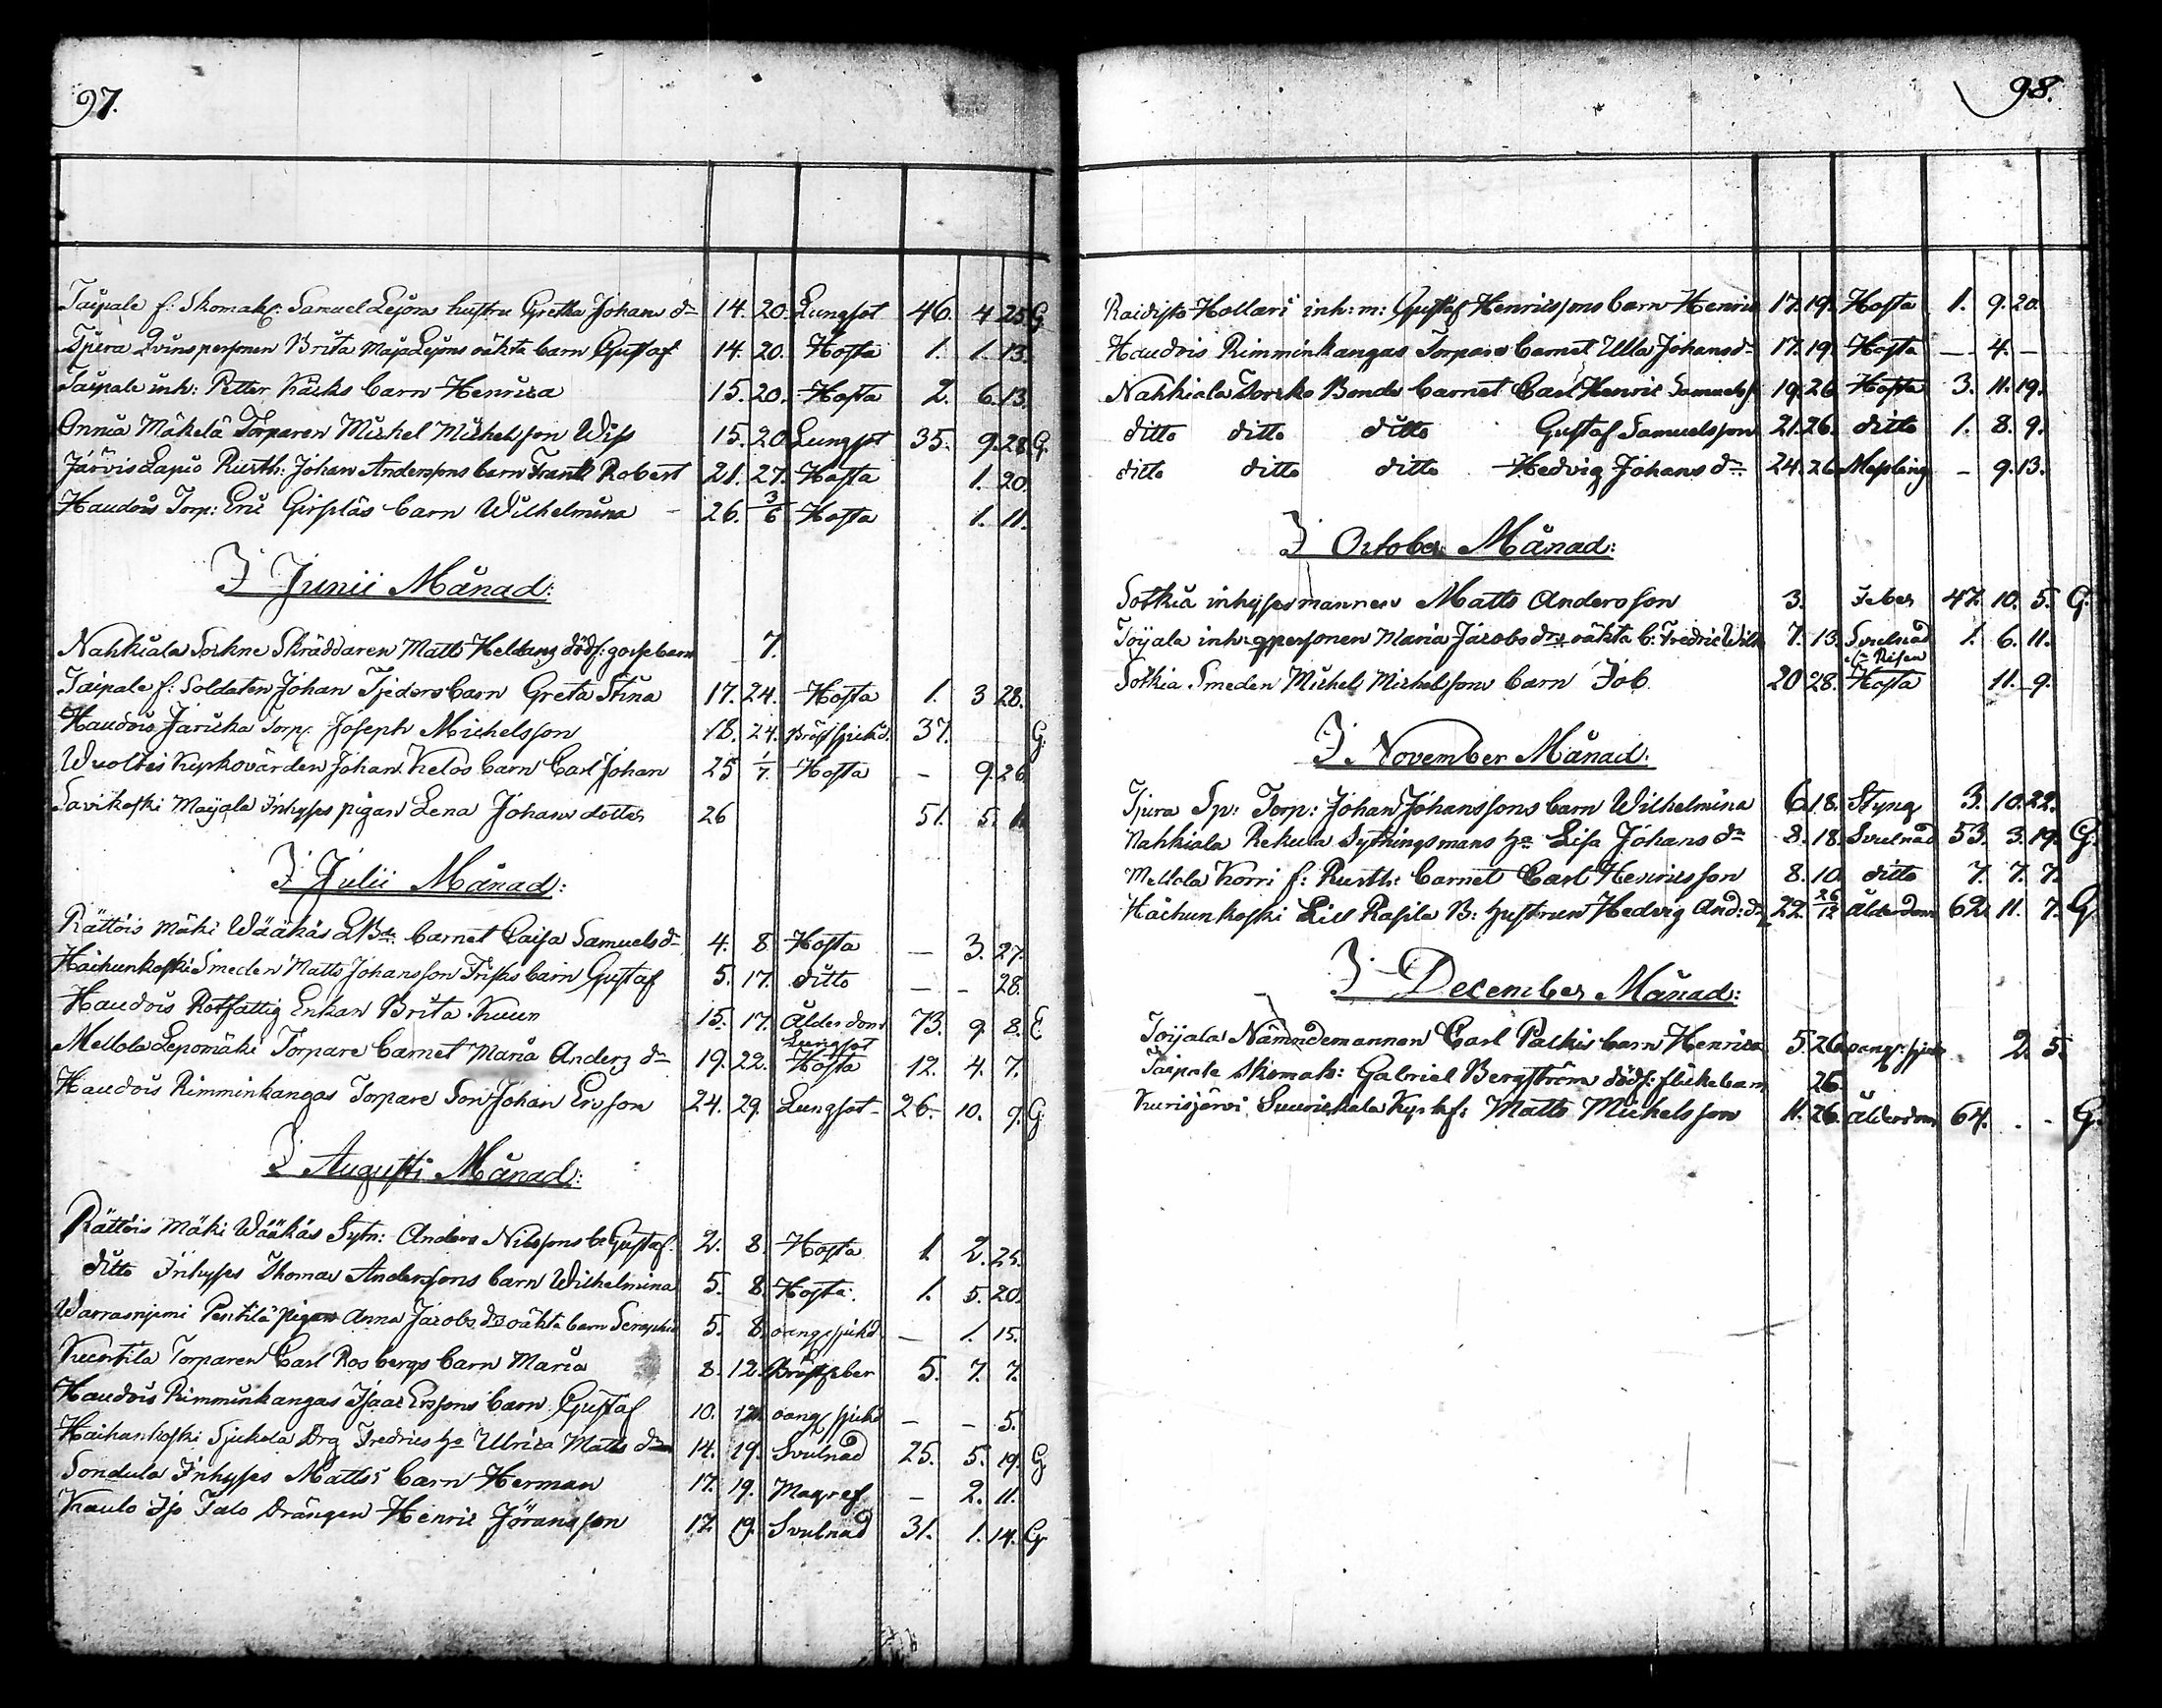 97.
Taipale f: Skomak: Samuel Lejons hustru Gretha Johans dr 14. 20. Lungsot 46. 4 25 G
Tjura Qvinspersonen Brita Maja Lejons oäkta barn Gustaf 14. 20. Hosta 1. 1. 13.
Taipale inh: Petter Käcks barn Henrica 15. 20. Hosta 2. 6. 13.
Onnia Mäkelä Torparen Michel Michelsson Wiss 15. 20 Lungsot 35. 9. 28 G.
Järvis Lapio Rusth: Johan Anderssons barn Frantz Robert 21. 27. Hosta 1. 20.
Haudois Torp: Eric Girsläs barn Wilhelmina 26. 3/6 Hosta 1. 11.
I Junii Månad:
Nahkiala Sorkne Skräddaren Matts Hellbergs dödf: gossebarn 7.
Taipale f: Soldaten Johan Tjeders barn Greta Stina 17. 24. Hosta 1. 3 28.
Haudois Jaricka Torp: Joseph Michelsson 18. 24. Bröstsjukd. 37. G.
Wuoltis Kyrkovärden Johan Kelos barn Carl Johan 25 1/7. Hosta - 9. 26
Savikoski Maijala Inhyses pigan Lena Johans dotter 26 51. 5.
I Julii Månad:
Rättöis Mäki Wääkäs barnet Caisa Samuels dr 4. 8 Hosta - 3. 27.
Haihunkoski Smeden Matts Johansson Frisks barn Gustaf 5. 17. ditto - - 28.
Haudois Rotfattig Enkan Brita Kuun 15. 17. Ålderdom 73. 9. 8. E.
Mellola Lepomäki Torpare barnet Maria Anders dr 19. 22. Lungsot Hosta 12. 4. 7.
Haudois Rimminkangas Torpare Son Johan Ersson 24. 29. Lungsot 26. 10. 9. G
I Augusti Månad:
Rättöis Mäki Wääkäs Sytn: Anders Nilssons b: Gustaf. 2. 8. Hosta 1. 2. 25.
ditto Inhyses Thomas Anderssons barn Wilhelmina 5. 8. Hosta. 1. 5. 20.
Warrasniemi Penttilä pigan Anna Jacobs drs oäkta barn Seraphia 5. 8. oang: sjukd - 1. 15.
Kuurtila Torparen Carl Rosbergs barn Maria 8. 12. Bröstfeber 5. 7. 7.
Haudois Rimminkangas Isaac Erssons barn Gustaf 10. 12. oang: sjukd - - 5.
Haihunkoski Sjukola Drg Fredrics ha Ulrica Matts dr 14. 19. Svulnad 25. 5. 19. G
Sondula Inhyses Matts's barn Herman 17. 19. Magref - 2. 11.
Kaulo Iso Talo Drängen Henric Jöransson 17 19. Svulnad 31. 1. 14. G
98.
Raidisto Hollari inh: m: Gustaf Henricssons barn Henric 17. 19. Hosta 1. 9. 20.
Haudois Rimminkangas Torpare barnet Ulla Johans dr 17. 19 Hosta - 4. -
Nahkiala Sorko Bonde barnet Carl Henric Samuelss: 19. 26 Hosta 3. 11. 19.
ditto ditto ditto Gustaf Samuelsson 21. 26. ditto 1. 8. 9.
ditto ditto ditto Hedvig Johans dr 24. 26 Messling - 9. 13.
I October Månad:
Sotkia inhysesmannen Matts Andersson 3. Feber 47. 10. 5. G.
Toijala inh: qpersonen Maria Jacobs drs oäkta b: Fredric Wilh 7. 13. Svulnad 1. 6. 11.
Sotkia Smeden Michel Michelsons barn Job 20 28. Hosta 11. 9.
I November Månad:
Tjura Sp: Torp: Johan Johanssons barn Wilhelmina 6. 18. Styng 3. 10. 22.
Nahkiala Rekula Sytningsmans ha Lisa Johans dr 8. 18. Svulnad 53. 3. 19. G.
Mellola Korri f: Rusth: barnet Carl Henricsson 8. 10. ditto 7. 7. 7.
Haihunkoski Lill Rasila B: hustrun Hedvig And: dr 22. 26/12 Ålderdom 62. 11. 7. G
I December Månad:
Toijala Nämndemannen Carl Palkis barn Henrica 5. 26. oang: sjukd 2. 5.
Taipale Skomak: Gabriel Bergström dödf: flickebarn 26.
Kurisjärvi Suurickala Kyrkf: Matts Michelsson 11. 26. Ålderdom 64. - - G.